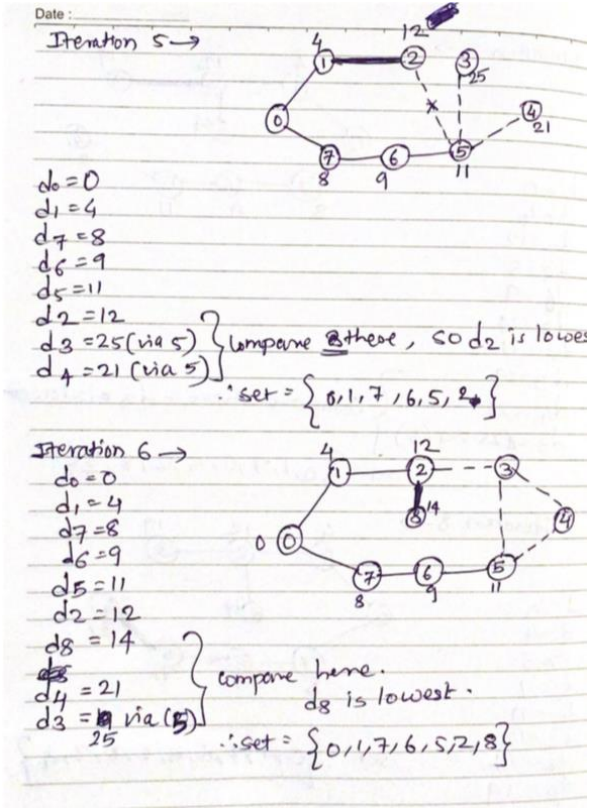 Date :
Iteration 5 →
4
12
1
2
3
25
0
4
21
7
6
5
8
9
11
d0 = 0
d1 = 4
d7 = 8
d6 = 9
d5 = 11
d2 = 12
d3 = 25 (via 5)
d4 = 21 (via 5)
compare 3 these, so d2 is lowes
∴ set = {0,1,7,6,5,2}
Iteration 6 →
4
12
1
2
3
14
8
4
0
0
7
6
5
8
9
11
d0 = 0
d1 = 4
d7 = 8
d6 = 9
d5 = 11
d2 = 12
d8 = 14
d4 = 21
d3 = via (5)
25
compare here.
d8 is lowest.
∴ set = {0,1,7,6,5,2,8}